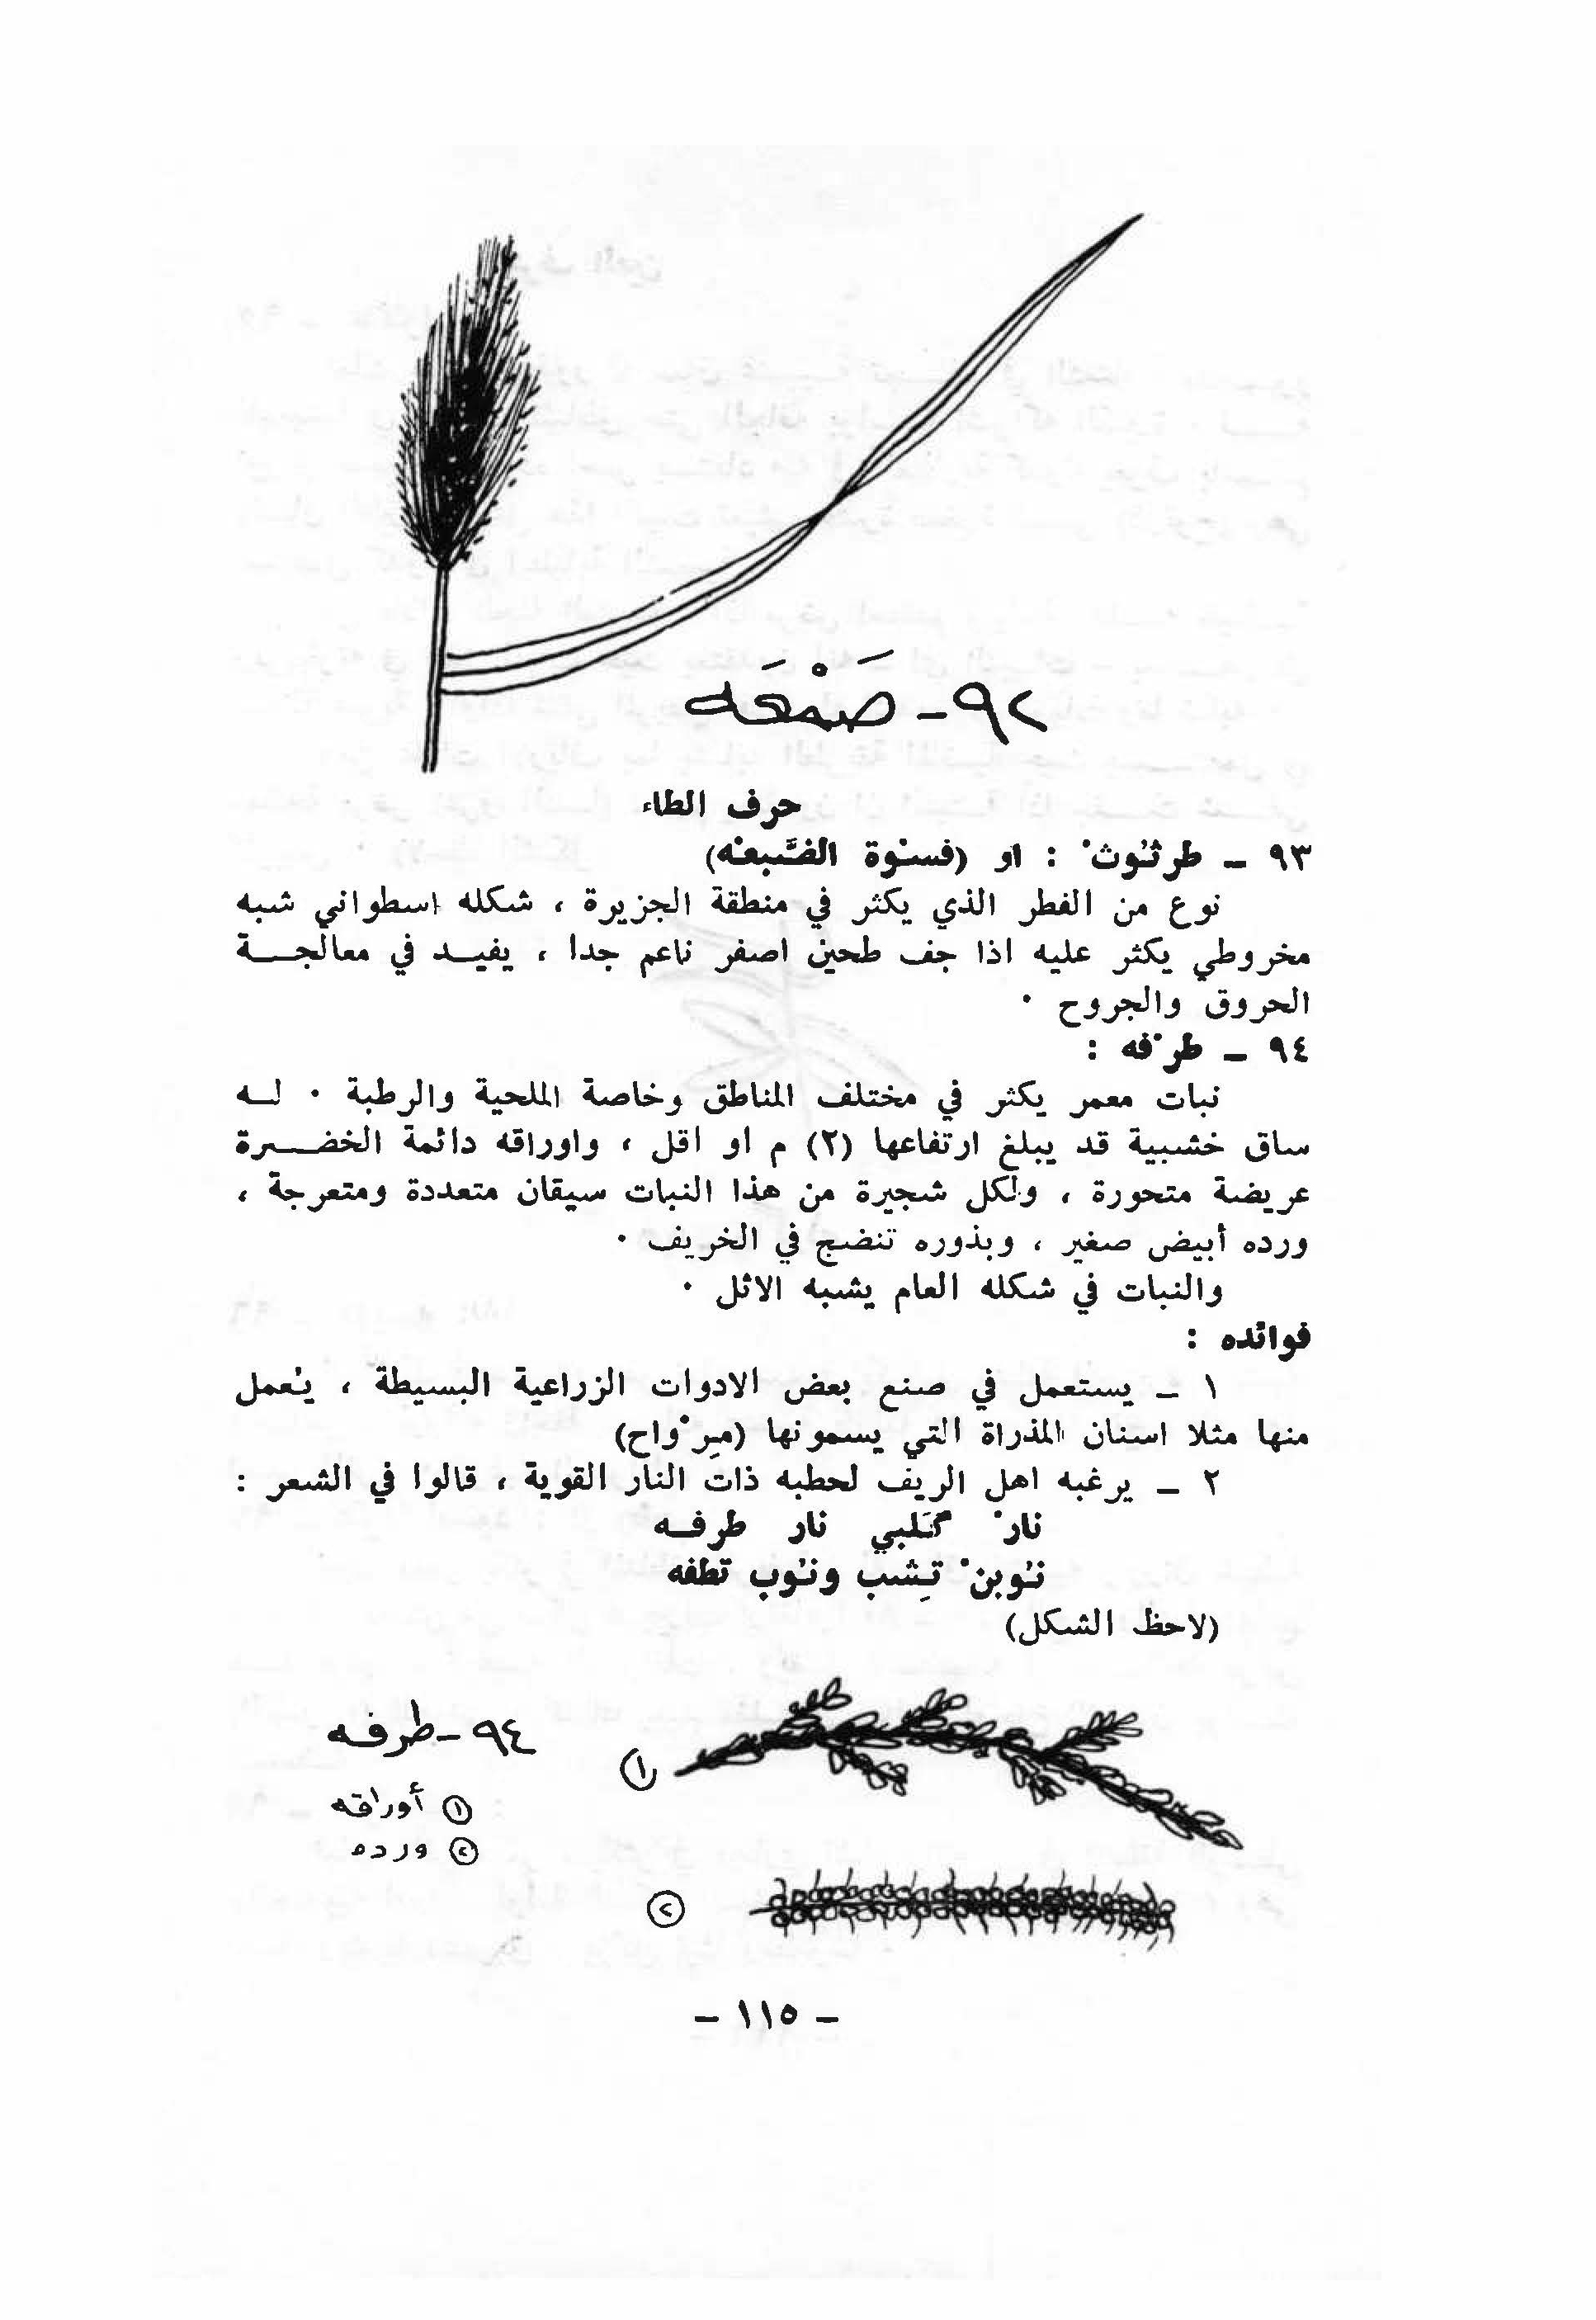 ٩٢ - صَمْعَه
حرف الطاء
٩٣ ـ طرثُوثْ : او (فسْوة الضَّبعُه)
نوع من الفطر الذي يكثر في منطقة الجزيرة ، شكله اسطواني شبه
مخروطي يكثر عليه اذا جف طحين اصفر ناعم جدا ، يفيـد في معالجـة
الحروق والجروح ٠
٩٤ ـ طرْفه :
نبات معمر يكثر في مختلف المناطق وخاصة الملحية والرطبة ٠ لـه
ساق خشبية قد يبلغ ارتفاعها (٢) م او اقل ، واوراقه دائمة الخضـرة
عريضة متحورة ، ولكل شجيرة من هذا النبات سيقان متعددة ومتعرجة ،
ورده أبيض صغير ، وبذوره تنضج في الخريف ٠
والنبات في شكله العام يشبه الاثل ٠
فوائده :
١ ـ يستعمل في صنع بعض الادوات الزراعية البسيطة ، يُعمل
منها مثلا اسنان المذراة التي يسمونها (مِرْواح)
٢ ـ يرغبه اهل الريف لحطبه ذات النار القوية ، قالوا في الشعر :
نارْ گَلبي نار طرفـه
نُوبنْ تِشب ونُوب تطفه
(لاحظ الشكل)
٩٤ - طرفه
١ أوراقه
٢ ورده
١
٢
ـ ١١٥ ـ